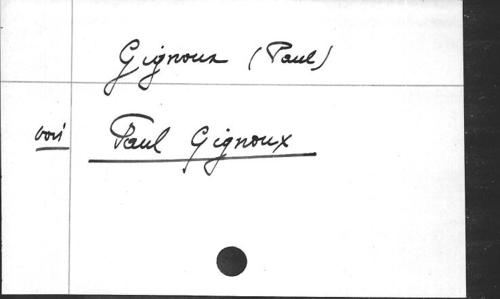 Gignoux (Paul)
voir Paul Gignoux